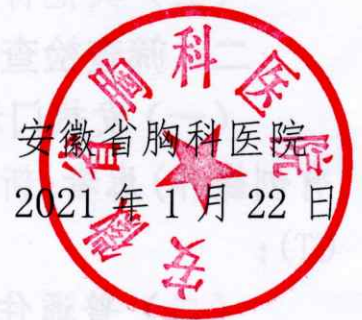 安徽省胸科医院
安徽省胸科医院
2021年1月22日